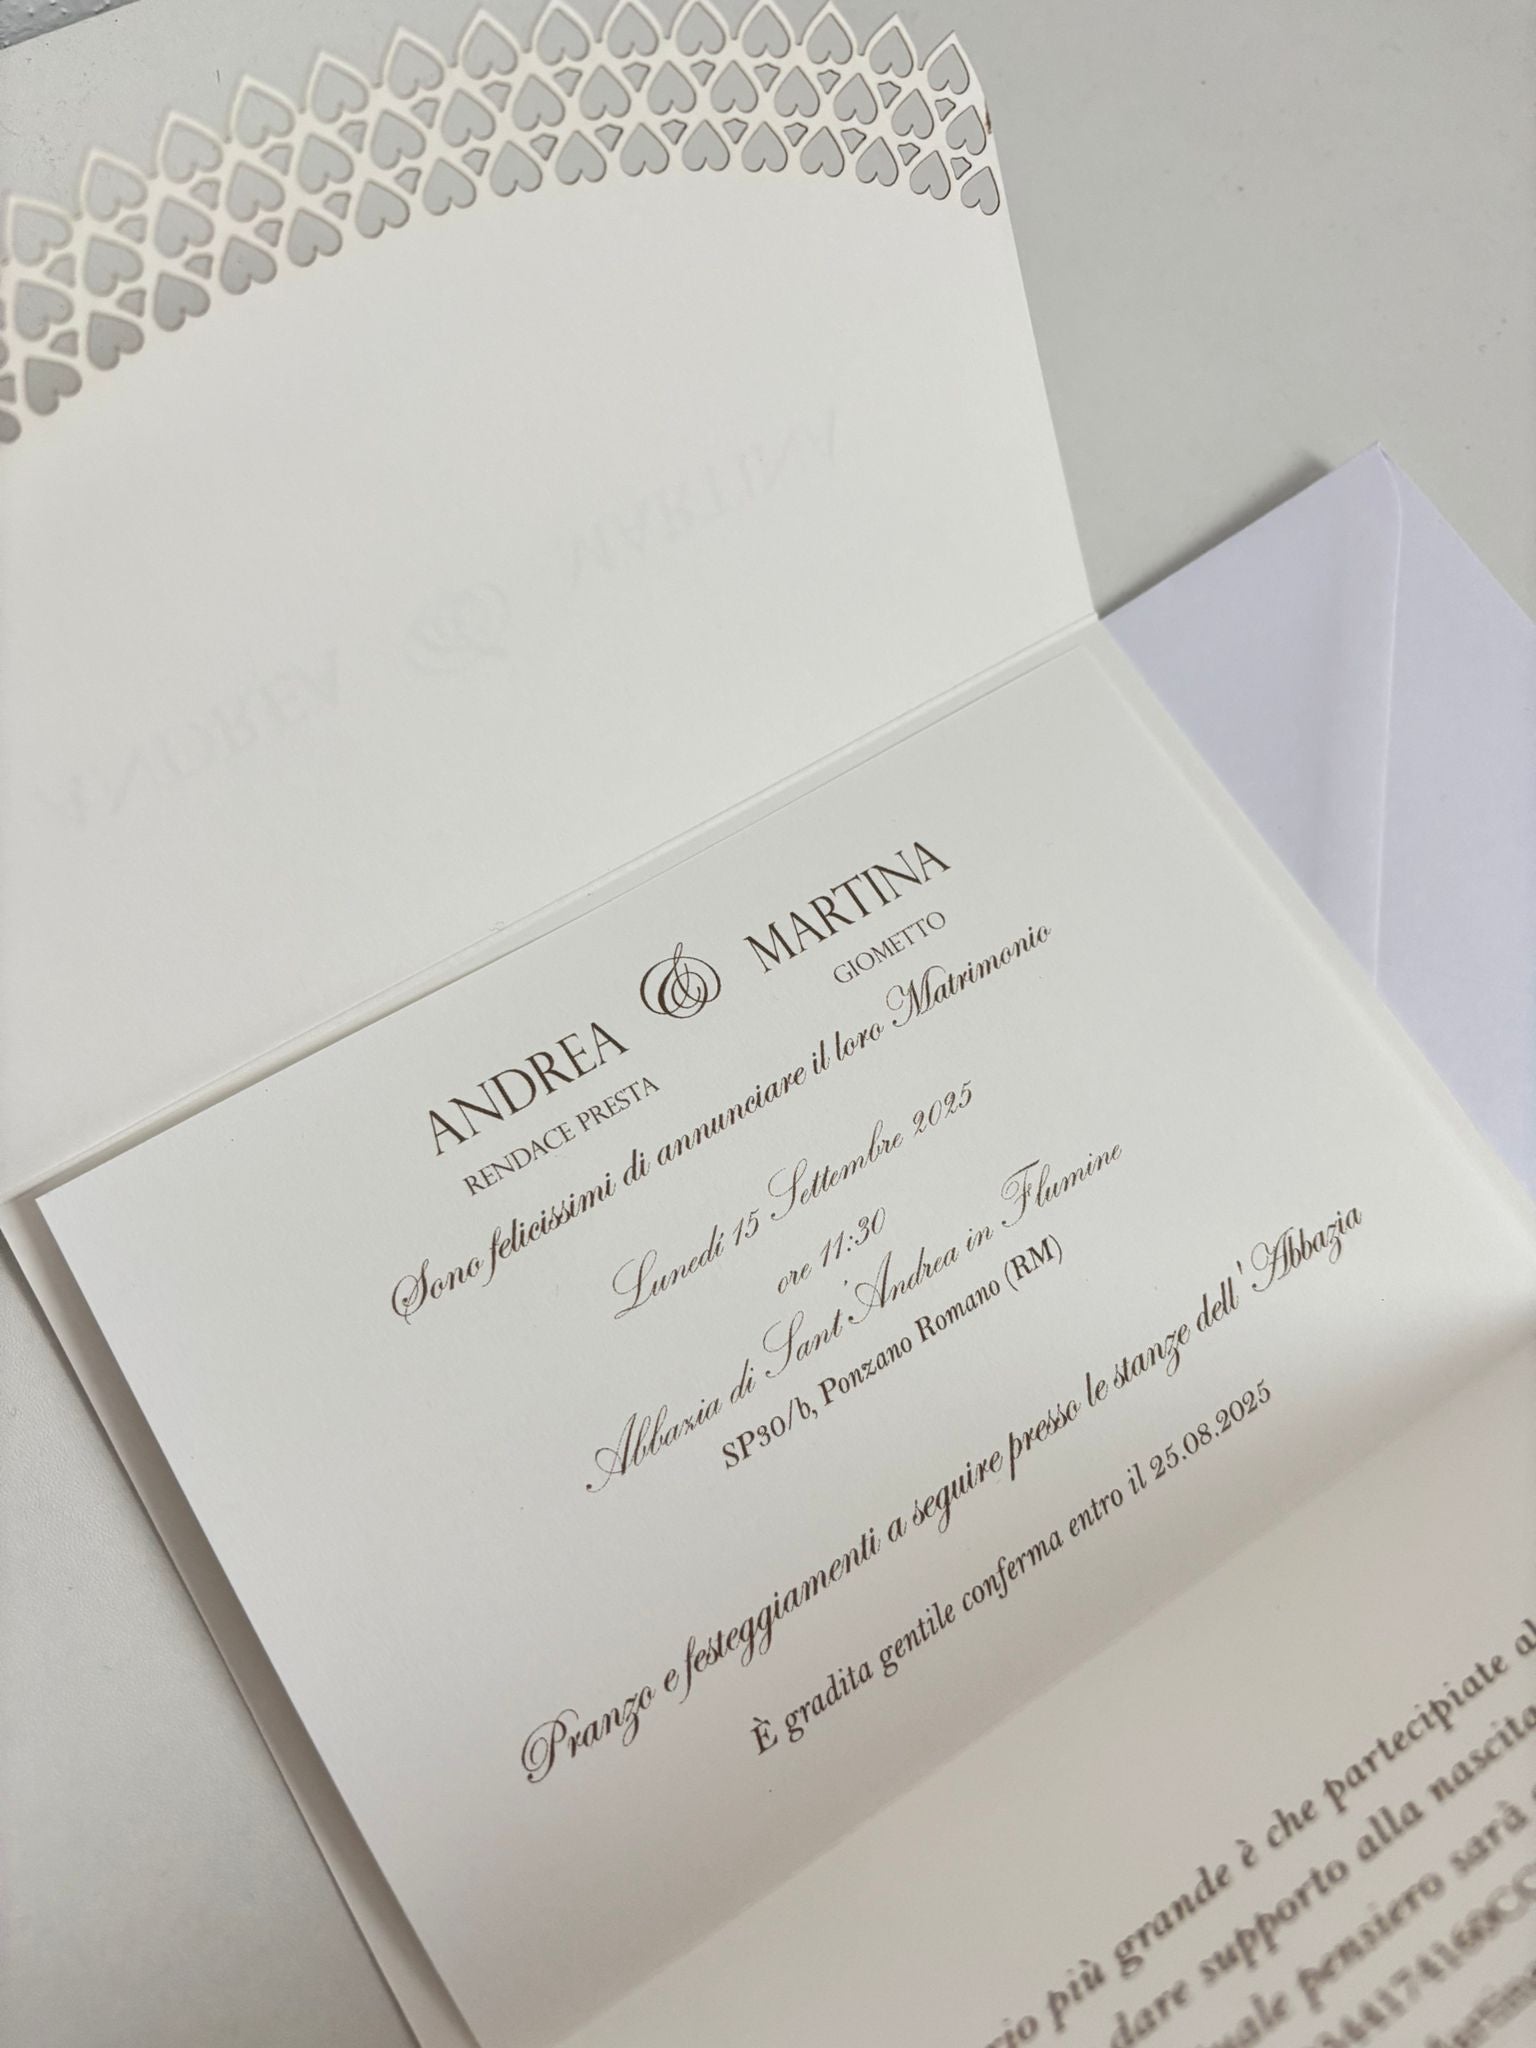 ANDREA & MARTINA
RENDACE PRESTA GIOMETTO
Sono felicissimi di annunciare il loro Matrimonio
Lunedì 15 Settembre 2025
ore 11:30
Abbazia di Sant'Andrea in Flumine
SP30/b, Ponzano Romano (RM)
Pranzo e festeggiamenti a seguire presso le stanze dell'Abbazia
È gradita gentile conferma entro il 25.08.2025
più grande è che partecipiate al
dare supporto alla nascita
pensiero sarà